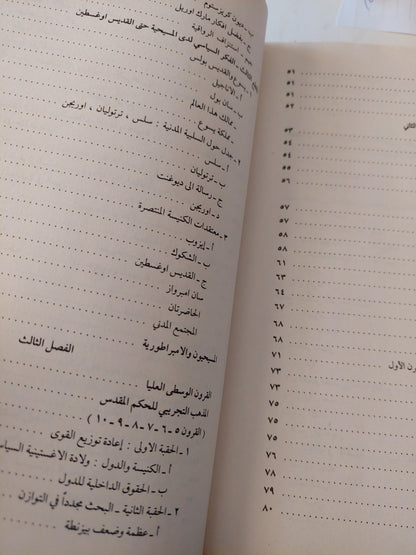 ب - ديون كريزستوم
ج - بفضل افكار مارك اوريل
د - استنزاف الرواقية
القسم الثالث : الفكر السياسي لدى المسيحية حتى القديس اوغسطين
١ - يسوع والقديس بولس
أ - الاناجيل
ب - سان بول
ممالك هذا العالم
مملكة يسوع
٢ - جدل حول السلبية المدنية : سلس ، ترتوليان ، اوريجن
أ - سلس
ب - ترتوليان
ج - رسالة الى ديوغنت
د - اوريجن
٣ - معتقدات الكنيسة المنتصرة
أ - إيزوب
ب - الشكوك
ج - القديس اوغسطين
سان امبرواز
الحاضرتان
المجتمع المدني
المسيحيون والامبراطورية
الفصل الثالث
القرون الوسطى العليا
المذهب التجريبي للحكم المقدس
( القرون ٥ - ٦ - ٧ - ٨ - ٩ - ١٠ )
١ - الحقبة الاولى : إعادة توزيع القوى
أ - الكنيسة والدول : ولادة الاغسنينية السياس
ب - الحقوق الداخلية للدول
٢ - الحقبة الثانية - البحث مجدداً في التوازن
أ - عظمة وضعف بيزنطة
٥١
٥١
٥٢
الثاني
٥٣
٥٤
٥٥
٥٦
٥٧
٥٧
٥٨
٥٨
٦١
٦٣
٦٤
٦٧
٦٨
٦٨
٧١
ون الأول
٧٣
٧٣
٧٥
٧٥
٧٨
٧٩
٨٠